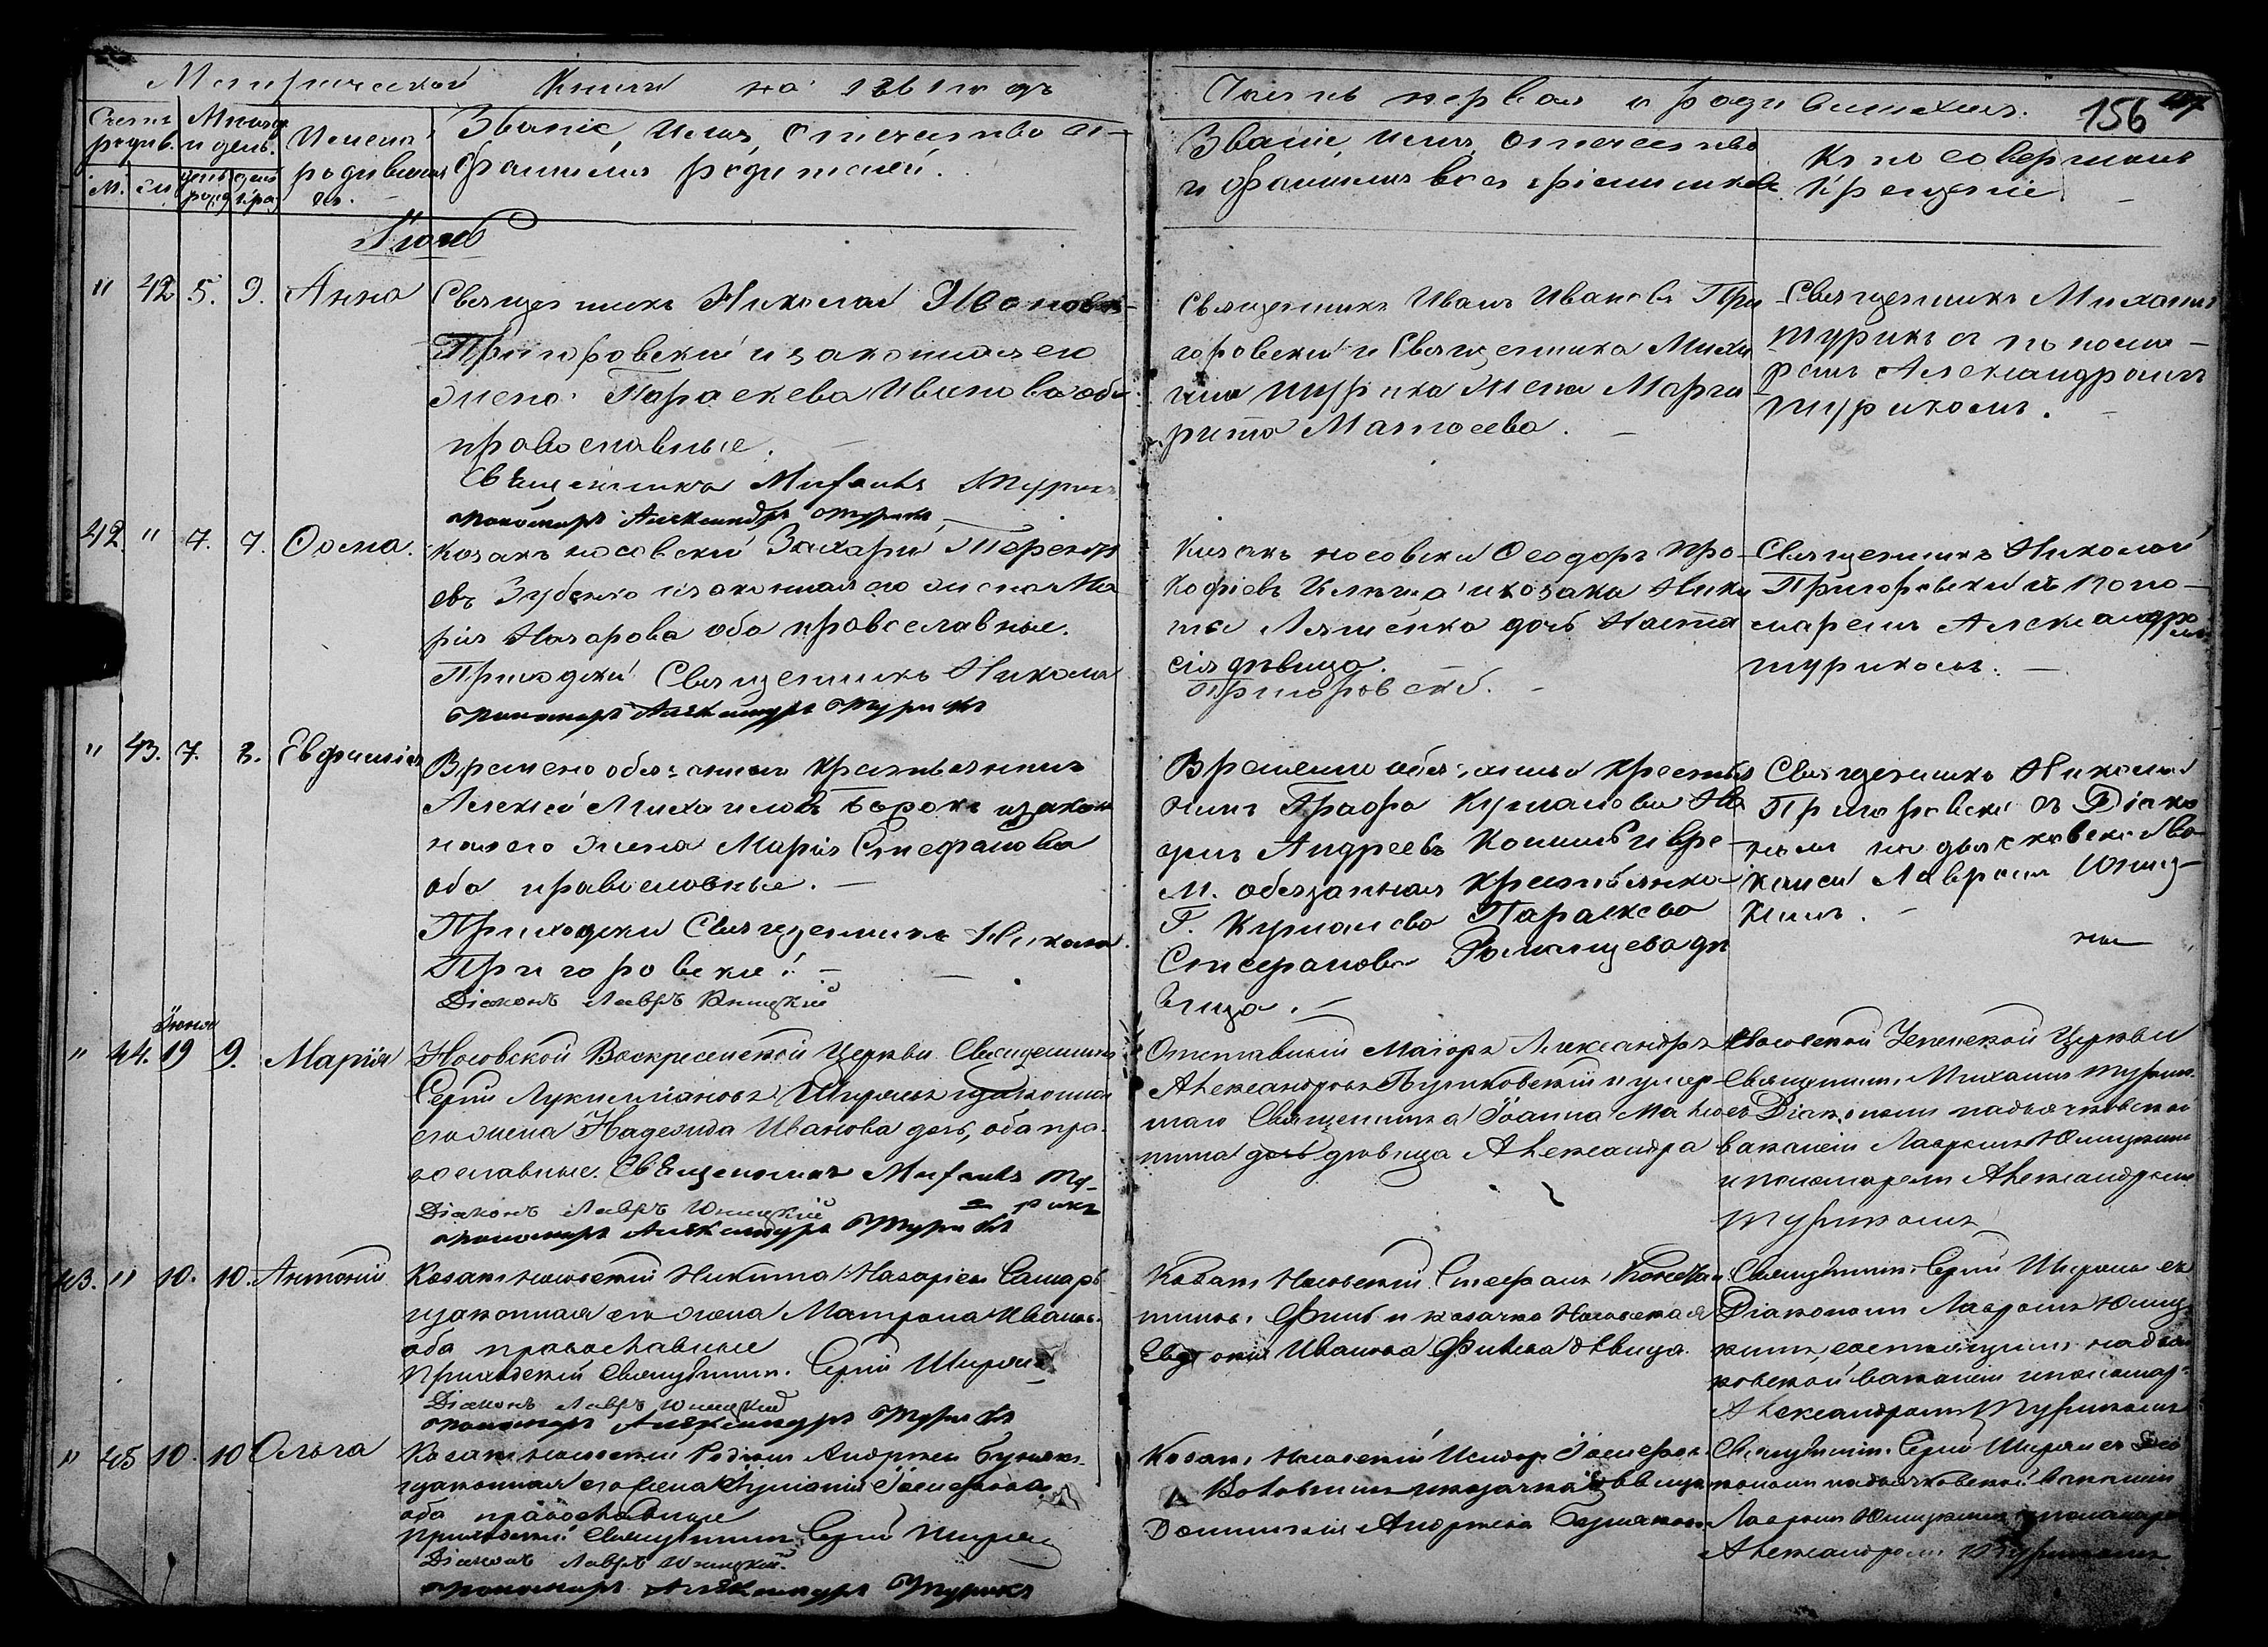 Метрической Книги на 1861 годъ
Счетъ родив.
М. Ж.
Месяцъ и день.
день рожд. день кре.
Имена родившихся.
Званіе, Имя, Отечество и
фамилія родителей.
Часть первая о родившихся.
156
Званіе, Имя, Отечество
и фамилія воспріемниковъ.
Кто совершалъ
Крещеніе.
Іюль
" 42 5. 9. Анна
Священникъ Николай Ивановъ
Пригоровскій и законная его
жена Параскева Иванова оба
православные.
Свѣщенникъ Михаилъ Турикъ
пономарь Александръ Турикъ
Священникъ Иванъ Ивановъ При
горовскій и Священника Миха
ила Турика жена Марга
рита Матвеева.
Священникъ Михаилъ
Турикъ с понома-
ремъ Александромъ
Турикомъ.
42. " 7. 7. Фома.
Козакъ носовскій Захарій Терентi
евъ Зубенко и законная его жена Ма
рія Назарова оба православные.
Приходскій Священникъ Никола
пономарь Александръ Турикъ
Козакъ носовскій Феодоръ Про-
кофіевъ и козака Ники
ты Ляшенка дочь Наста
сія дѣвица.
Пригоровскій.
Священникъ Николай
Пригоровскій съ поно-
маремъ Александромъ
Турикомъ.
" 43. 7. 8. Евфимія
Временно обязанный крестьянинъ
Алексей Михайловъ и закон
ная его жена Марія Стефанова
оба православные.
Приходскій Священникъ Никола
Пригоровскій.
Діаконъ Лавръ Юницкій
Временно обязанный крестья
нинъ Графа
Андреевъ и вре-
м. обязанная крестьянка
Г. Параскева
Стефанова дѣ
вица.
Священникъ Николай
Пригоровскій съ Діако
номъ на дьячковской ва
кансіи Лавромъ Юниц-
кимъ.
Іюня
" 44. 19 9. Марія
Носовской Воскресенской Церкви Священникъ
Сергій Лукилліановъ Ширяй и законная
его жена Надежда Иванова дочь, оба пра-
вославные. Свѣщенникъ Михаилъ Ту-
рикъ
Діаконъ Лавръ Юницкій
пономарь Александръ Турикъ
Отставный Маіоръ Александръ
Александровъ и умер-
шаго Священника Іоанна
дочь дѣвица Александра
Носовской Успенской Церкви
Священникъ Михаилъ Турикъ
съ Діакономъ на дьячковской
вакансіи Лавромъ Юницкимъ
и пономаремъ Александромъ
Турикомъ
43. " 10. 10. Антоній
Козакъ Носовскій Никита Назаріевъ
и законная его жена Матрона Иванова
оба православные
Приходскій Священникъ Сергій Ширяй
Діаконъ Лавръ Юницкій
пономарь Александръ Турикъ
Козакъ Носовскій Стефанъ
и козачка Носовская
Евдокія Иванова дѣвица.
Священникъ Сергій Ширяй съ
Діакономъ Лавромъ Юниц
кимъ, состоящимъ на дьяч
ковской вакансіи и пономар.
Александромъ Турикомъ
" 45 10. 10 Ольга
Козакъ Носовскій Родіонъ Андреевъ
и законная его жена Іосифова
оба православные
Приходскій Священникъ Сергій Ширяй
Діаконъ Лавръ Юницкій.
пономарь Александръ Турикъ
Козакъ Носовскій Исидоръ Іосифовъ
и козачка дѣвица
Домникія Андреева
Священникъ Сергій Ширяй съ Діа
кономъ на дьячковской вакансіи
Лавромъ Юницкимъ и пономарем
Александромъ Турикомъ